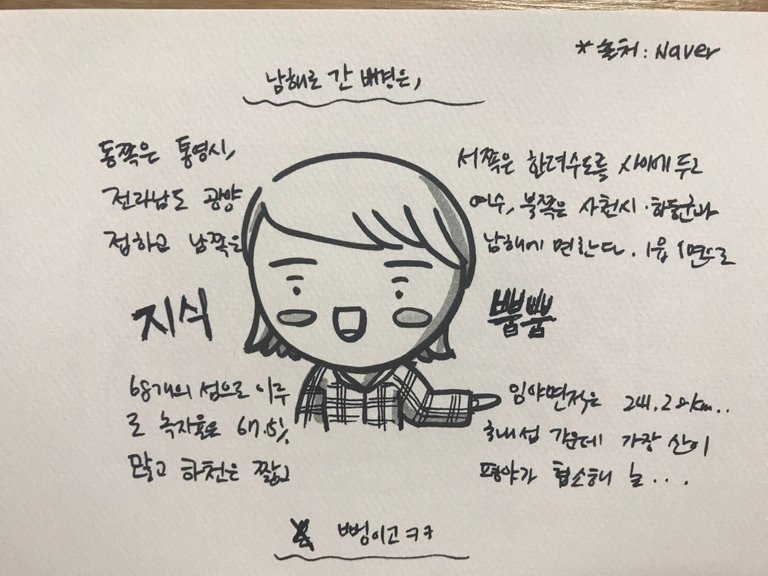 *출처: Naver
남해로 간 배경은,
동쪽은 통영시,
서쪽은 한려수도를 사이에 두고
전라남도 광양
여수, 북쪽은 사천시·하동군과
접하고 남쪽은
남해에 면한다. 1읍 1면으로
지식
뿜뿜
68개의 섬으로 이루
임야면적은 241.28km..
로 녹지율은 67.5%
국내섬 가운데 가장 산이
많고 하천은 짧고
평야가 협소해 논...
뻥이고ㅋㅋ